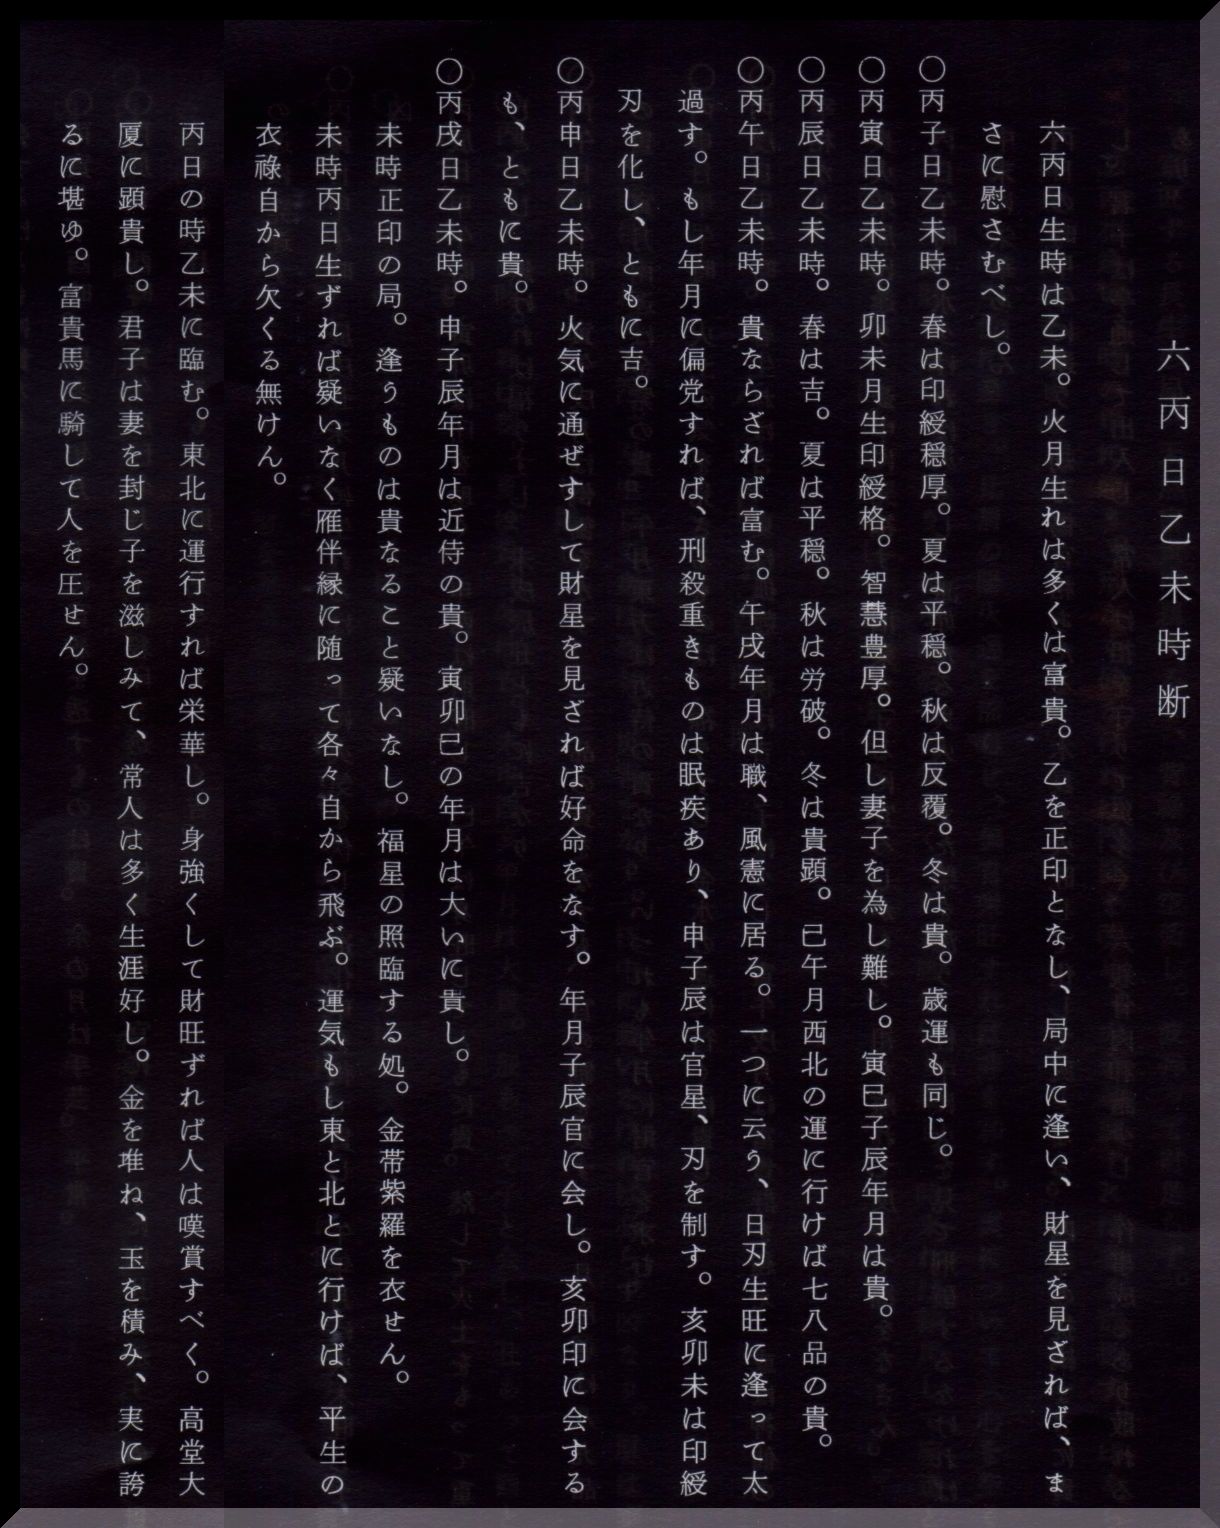 六丙日乙未時断
六丙日生時は乙未。火月生れは多くは富貴。乙を正印となし、局中に逢い、財星を見ざれば、ま
さに慰さむべし。
〇丙子日乙未時。春は印綬穏厚。夏は平穏。秋は反覆。冬は貴。歳運も同じ。
〇丙寅日乙未時。卯未月生印綬格。智慧豊厚。但し妻子を為し難し。寅巳子辰年月は貴。
〇丙辰日乙未時。春は吉。夏は平穏。秋は労破。冬は貴顕。已午月西北の運に行けば七八品の貴。
〇丙午日乙未時。貴ならざれば富む。午戌年月は職、風憲に居る。一つに云う、日刃生旺に逢って太
過す。もし年月に偏党すれば、刑殺重きものは眠疾あり、申子辰は官星、刃を制す。亥卯未は印綬
刃を化し、ともに吉。
〇丙申日乙未時。火気に通ぜすして財星を見ざれば好命をなす。年月子辰官に会し。亥卯印に会する
も、ともに貴。
〇丙戌日乙未時。申子辰年月は近侍の貴。寅卯巳の年月は大いに貴し。
未時正印の局。逢うものは貴なること疑いなし。福星の照臨する処。金帯紫羅を衣せん。
未時丙日生ずれば疑いなく雁伴縁に随って各々自から飛ぶ。運気もし東と北とに行けば、平生の
衣祿自から欠くる無けん。
丙日の時乙未に臨む。東北に運行すれば栄華し。身強くして財旺ずれば人は嘆賞すべく。高堂大
厦に顕貴し。君子は妻を封じ子を滋しみて、常人は多く生涯好し。金を堆ね、玉を積み、実に誇
るに堪ゆ。富貴馬に騎して人を圧せん。